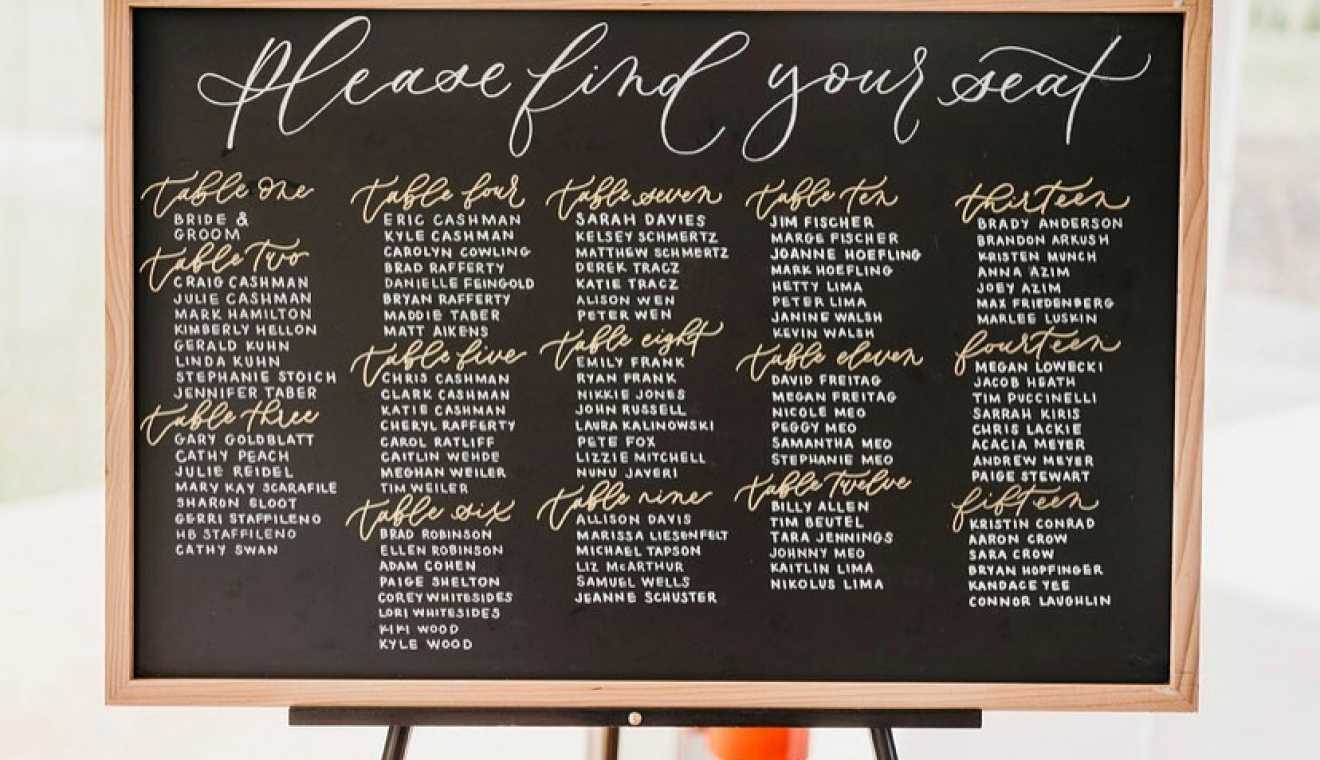 please find your seat
table one
BRIDE &
GROOM
table two
CRAIG CASHMAN
JULIE CASHMAN
MARK HAMILTON
KIMBERLY HELLON
GERALD KUHN
LINDA KUHN
STEPHANIE STOICH
JENNIFER TABER
table three
GARY GOLDBLATT
CATHY PEACH
JULIE REIDEL
MARY KAY SCARAFILE
SHARON SLOOT
GERRI STAFFILENO
HB STAFFILENO
CATHY SWAN
table four
ERIC CASHMAN
KYLE CASHMAN
CAROLYN COWLING
BRAD RAFFERTY
DANIELLE FEINGOLD
BRYAN RAFFERTY
MADDIE TABER
MATT AIKENS
table five
CHRIS CASHMAN
CLARK CASHMAN
KATIE CASHMAN
CHERYL RAFFERTY
CAROL RATLIFF
CAITLIN WEHDE
MEGHAN WEILER
TIM WEILER
table six
BRAD ROBINSON
ELLEN ROBINSON
ADAM COHEN
PAIGE SHELTON
COREY WHITESIDES
LORI WHITESIDES
KIKI WOOD
KYLE WOOD
table seven
SARAH DAVIES
KELSEY SCHMERTZ
MATTHEW SCHMERTZ
DEREK TRACZ
KATIE TRACZ
ALISON WEN
PETER WEN
table eight
EMILY FRANK
RYAN FRANK
NIKKIE JONES
JOHN RUSSELL
LAURA KALINOWSKI
PETE FOX
LIZZIE MITCHELL
NUNU JAYERI
table nine
ALLISON DAVIS
MARISSA LIESENFELT
MICHAEL TAPSON
LIZ McARTHUR
SAMUEL WELLS
JEANNE SCHUSTER
table ten
JIM FISCHER
MARGE FISCHER
JOANNE HOEFLING
MARK HOEFLING
HETTY LIMA
PETER LIMA
JANINE WALSH
KEVIN WALSH
table eleven
DAVID FREITAG
MEGAN FREITAG
NICOLE MEO
PEGGY MEO
SAMANTHA MEO
STEPHANIE MEO
table twelve
BILLY ALLEN
TIM BEUTEL
TARA JENNINGS
JOHNNY MEO
KAITLIN LIMA
NIKOLUS LIMA
thirteen
BRADY ANDERSON
BRANDON ARKUSH
KRISTEN MUNCH
ANNA AZIM
JOEY AZIM
MAX FRIEDENBERG
MARLEE LUSKIN
fourteen
MEGAN LOWECKI
JACOB HEATH
TIM PUCCINELLI
SARRAH KIRIS
CHRIS LACKIE
ACACIA MEYER
ANDREW MEYER
PAIGE STEWART
fifteen
KRISTIN CONRAD
AARON CROW
SARA CROW
BRYAN HOPFINGER
KANDACE YEE
CONNOR LAUGHLIN